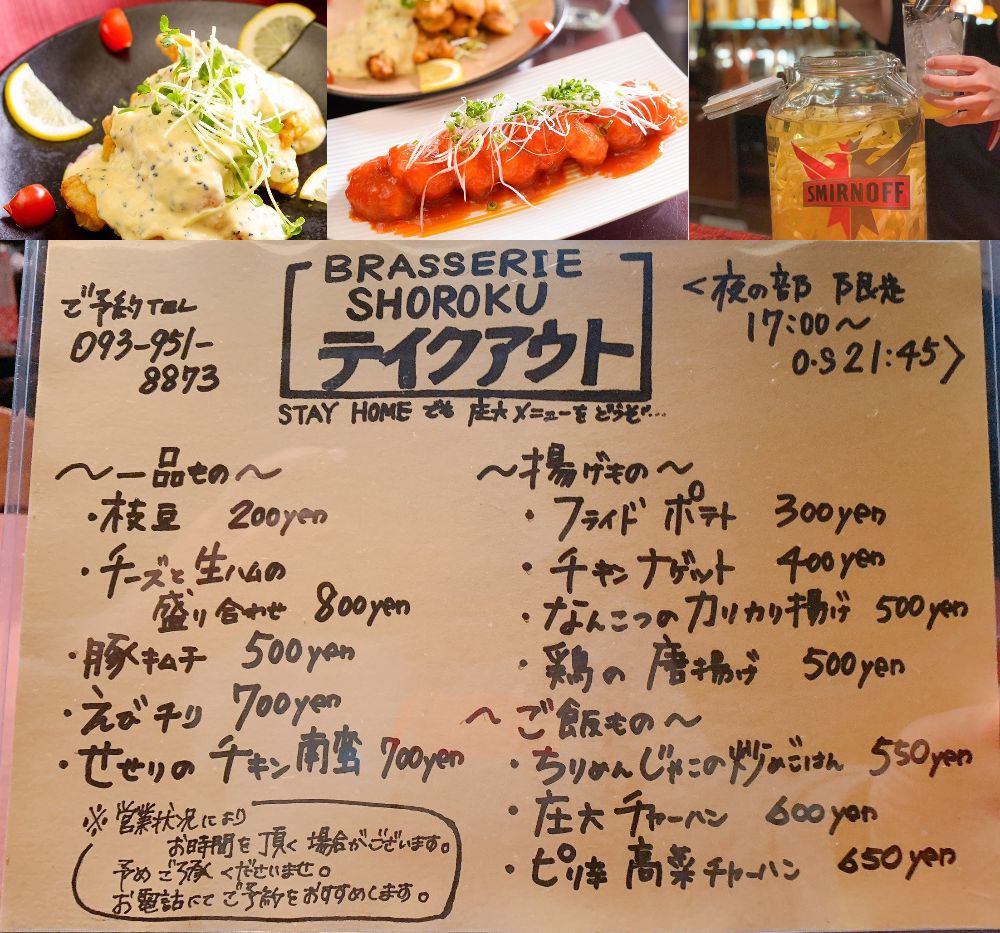 SMIRNOFF
BRASSERIE
SHOROKU
テイクアウト
STAY HOME でも 庄六 メニューを どうぞ…
ご予約 TEL
093-951-
8873
<夜の部 限定
17:00〜
O.S 21:45>
〜一品もの〜
・枝豆 200yen
・チーズと生ハムの
盛り合わせ 800yen
・豚キムチ 500yen
・えびチリ 700yen
・せせりの チキン南蛮 700yen
※営業状況により
お時間を頂く場合がございます。
予めご了承くださいませ。
お電話にてご予約をおすすめします。
〜揚げもの〜
・フライド ポテト 300yen
・チキン ナゲット 400yen
・なんこつの カリカリ揚げ 500yen
・鶏の 唐揚げ 500yen
〜ご飯もの〜
・ちりめんじゃこの炒めごはん 550yen
・庄六 チャーハン 600yen
・ピリ辛 高菜チャーハン 650yen